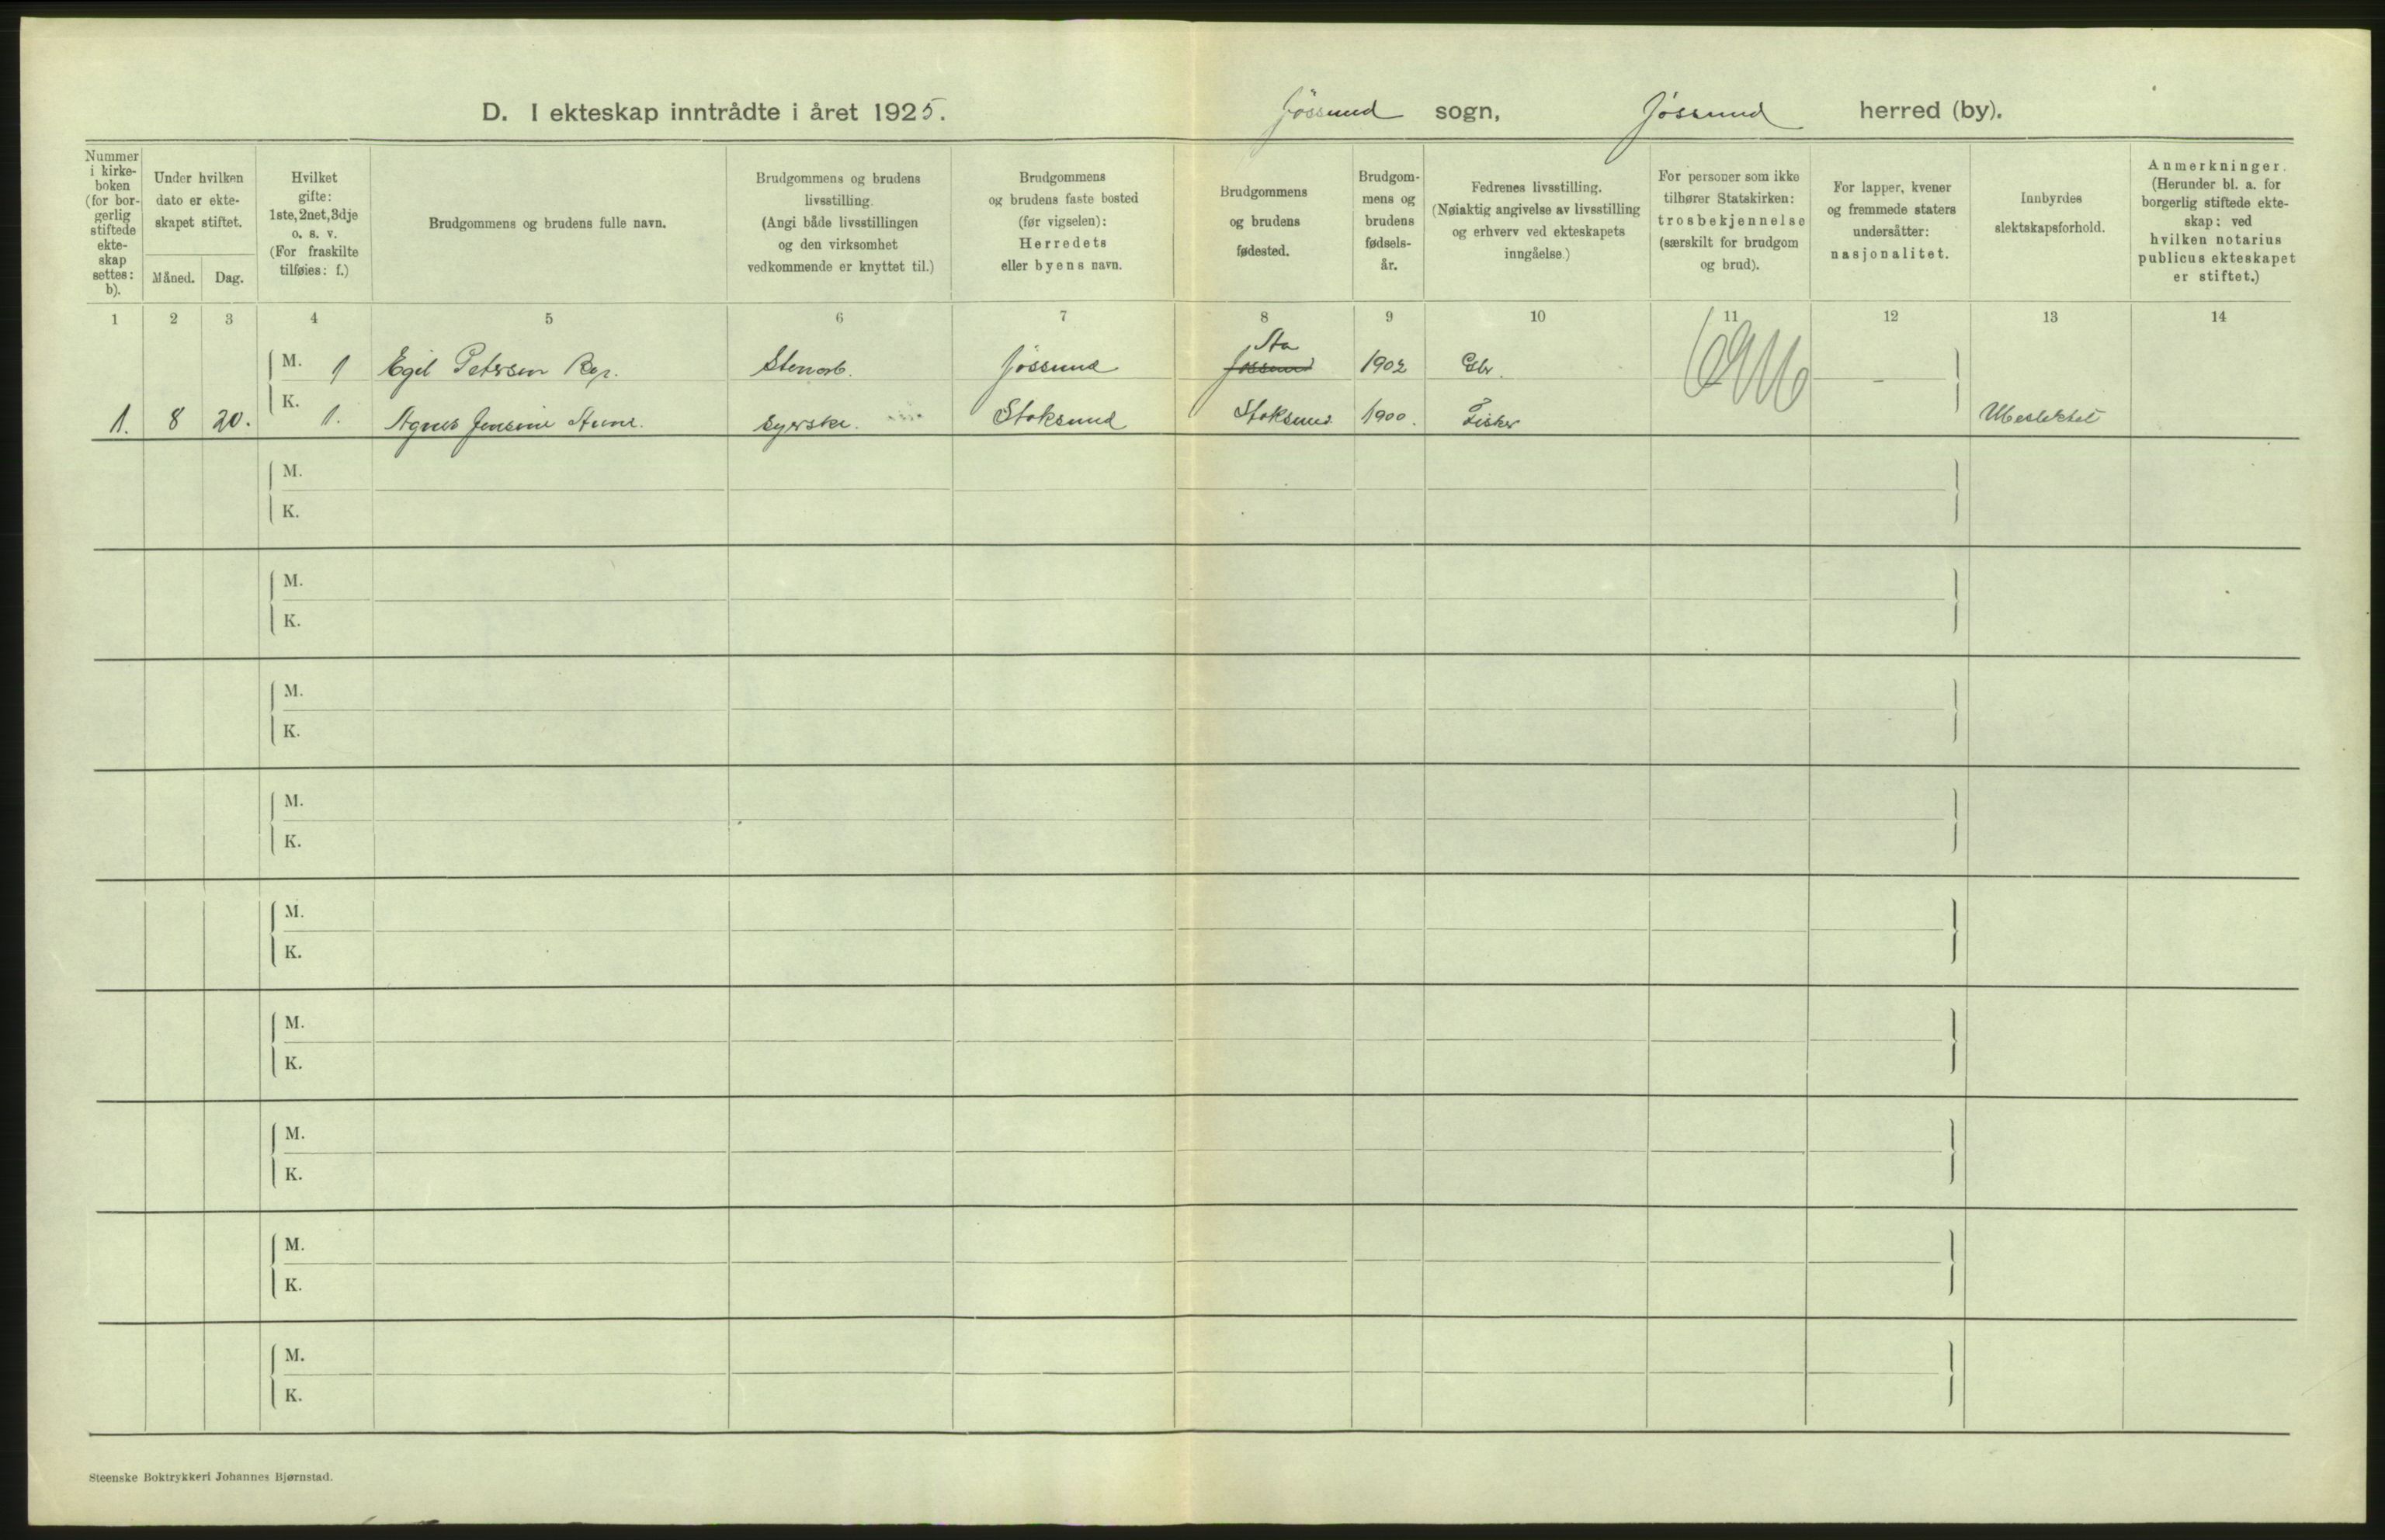 D. I ekteskap inntrådte i året 1925. Jössund sogn, Jössund herred (by).
Nummer
i kirke-
boken
(for bor-
gerlig
stiftede
ekte-
skap
settes:
b).
Under hvilken
dato er ekte-
skapet stiftet.
Måned. Dag.
Hvilket
gifte:
1ste, 2net, 3dje
o. s. v.
(For fraskilte
tilføies: f.)
Brudgommens og brudens fulle navn.
Brudgommens og brudens
livsstilling.
(Angi både livsstillingen
og den virksomhet
vedkommende er knyttet til.)
Brudgommens
og brudens faste bosted
(før vigselen):
Herredets
eller byens navn.
Brudgommens
og brudens
fødested.
Brudgom-
mens og
brudens
fødsels-
år.
Fedrenes livsstilling.
(Nøiaktig angivelse av livsstilling
og erhverv ved ekteskapets
inngåelse.)
For personer som ikke
tilhører Statskirken:
trosbekjennelse
(særskilt for brudgom
og brud).
For lapper, kvener
og fremmede staters
undersåtter:
nasjonalitet.
Innbyrdes
slektskapsforhold.
Anmerkninger.
(Herunder bl. a. for
borgerlig stiftede ekte-
skap: ved
hvilken notarius
publicus ekteskapet
er stiftet.)
1 2 3 4 5 6 7 8 9 10 11 12 13 14
M. 1 Egil Petersen Stenarb. Jössund Jössund 1902 Gbr. -
K. 1. 8 20. 1. Agnes Jensine Syerske. Stoksund Stoksund 1900. Fisker Ubeslektet
M.
K.
M.
K.
M.
K.
M.
K.
M.
K.
M.
K.
M.
K.
M.
K.
M.
K.
Steenske Boktrykkeri Johannes Bjørnstad.